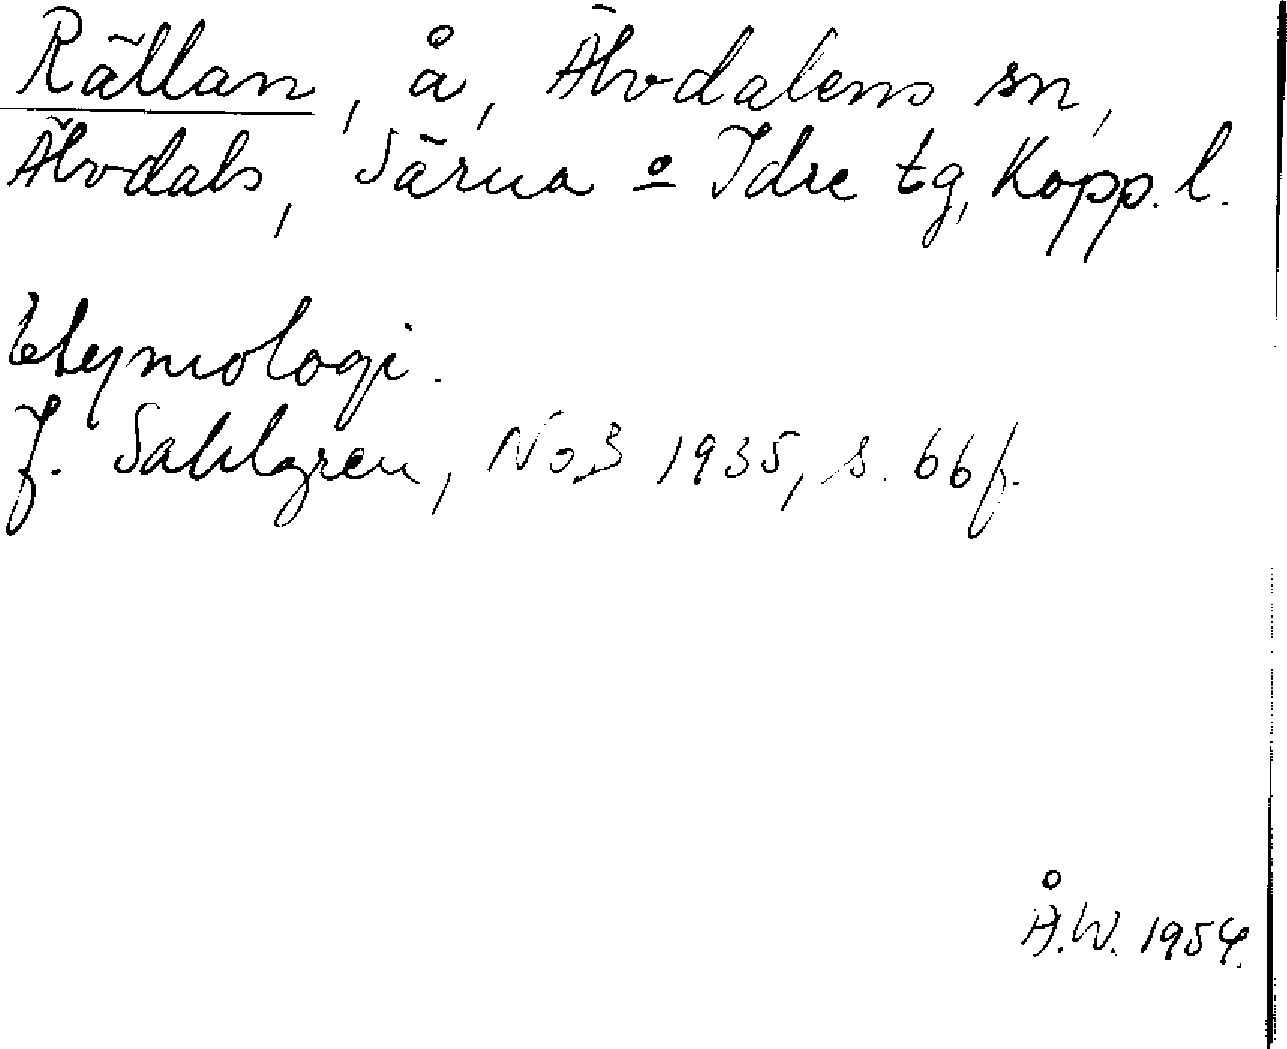 Rällan, å, Älvdalens sn,
Älvdals, Särna o Idre tg, Kopp. l.
Etymologi.
J. Sahlgren, NoB 1935, s. 66 f.
Å.W. 1954.